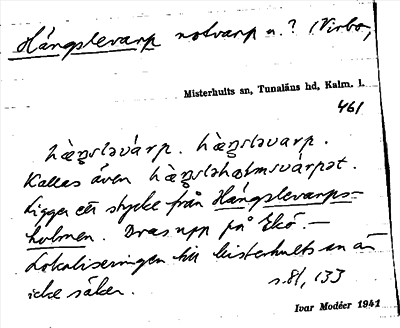 Hängslevarp notvarp n.? (Virbo)
Misterhults sn, Tunaläns hd, Kalm. l.
461
hàŋ̥sləvárp. hàŋ̥sləvarp.
Kallas även hàŋ̥sləhɷlmsvárpət.
Ligger ett stycke från Hängslevarps-
holmen. Dras upp på Ekö. —
Lokaliseringen till Misterhults sn är
icke säker. s. 81, 133
Ivar Modéer 1941